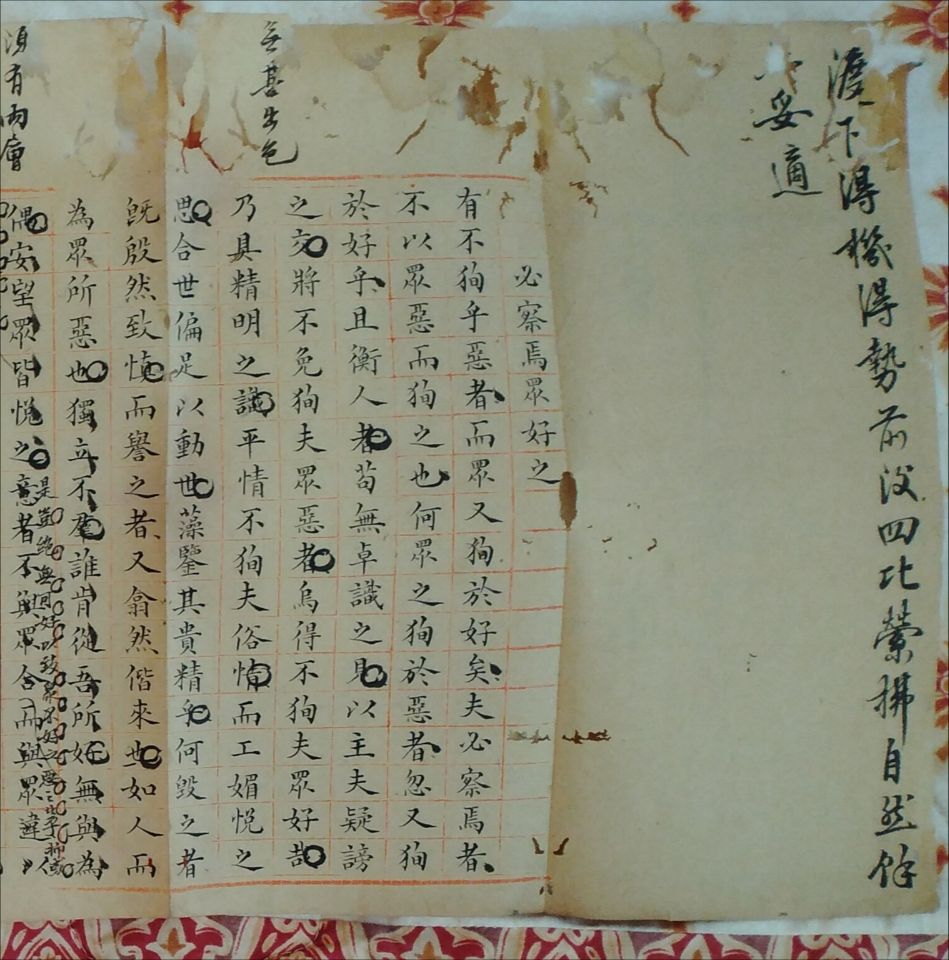 渡下得機得勢前後四比縈拂自然餘
妥適
必察焉眾好之
有不狥乎惡者而眾又狥於好矣夫必察焉者
不以眾惡而狥之也何眾之狥於惡者忽又狥
於好乎且衡人者苟無卓識之見以主夫疑謗
之交將不免狥夫眾惡者烏得不狥夫眾好哉
乃具精明之識平情不狥夫俗情而工媚悅之
思合世偏足以動世藻鑒其貴精乎何毀之者
既殷然致慎而譽之者又翕然偕來也如人而
為眾所惡也獨立不群誰肯從吾所好無與為
偶安望眾皆悅之意者不與眾合而與眾違
無甚出色
須有兩層